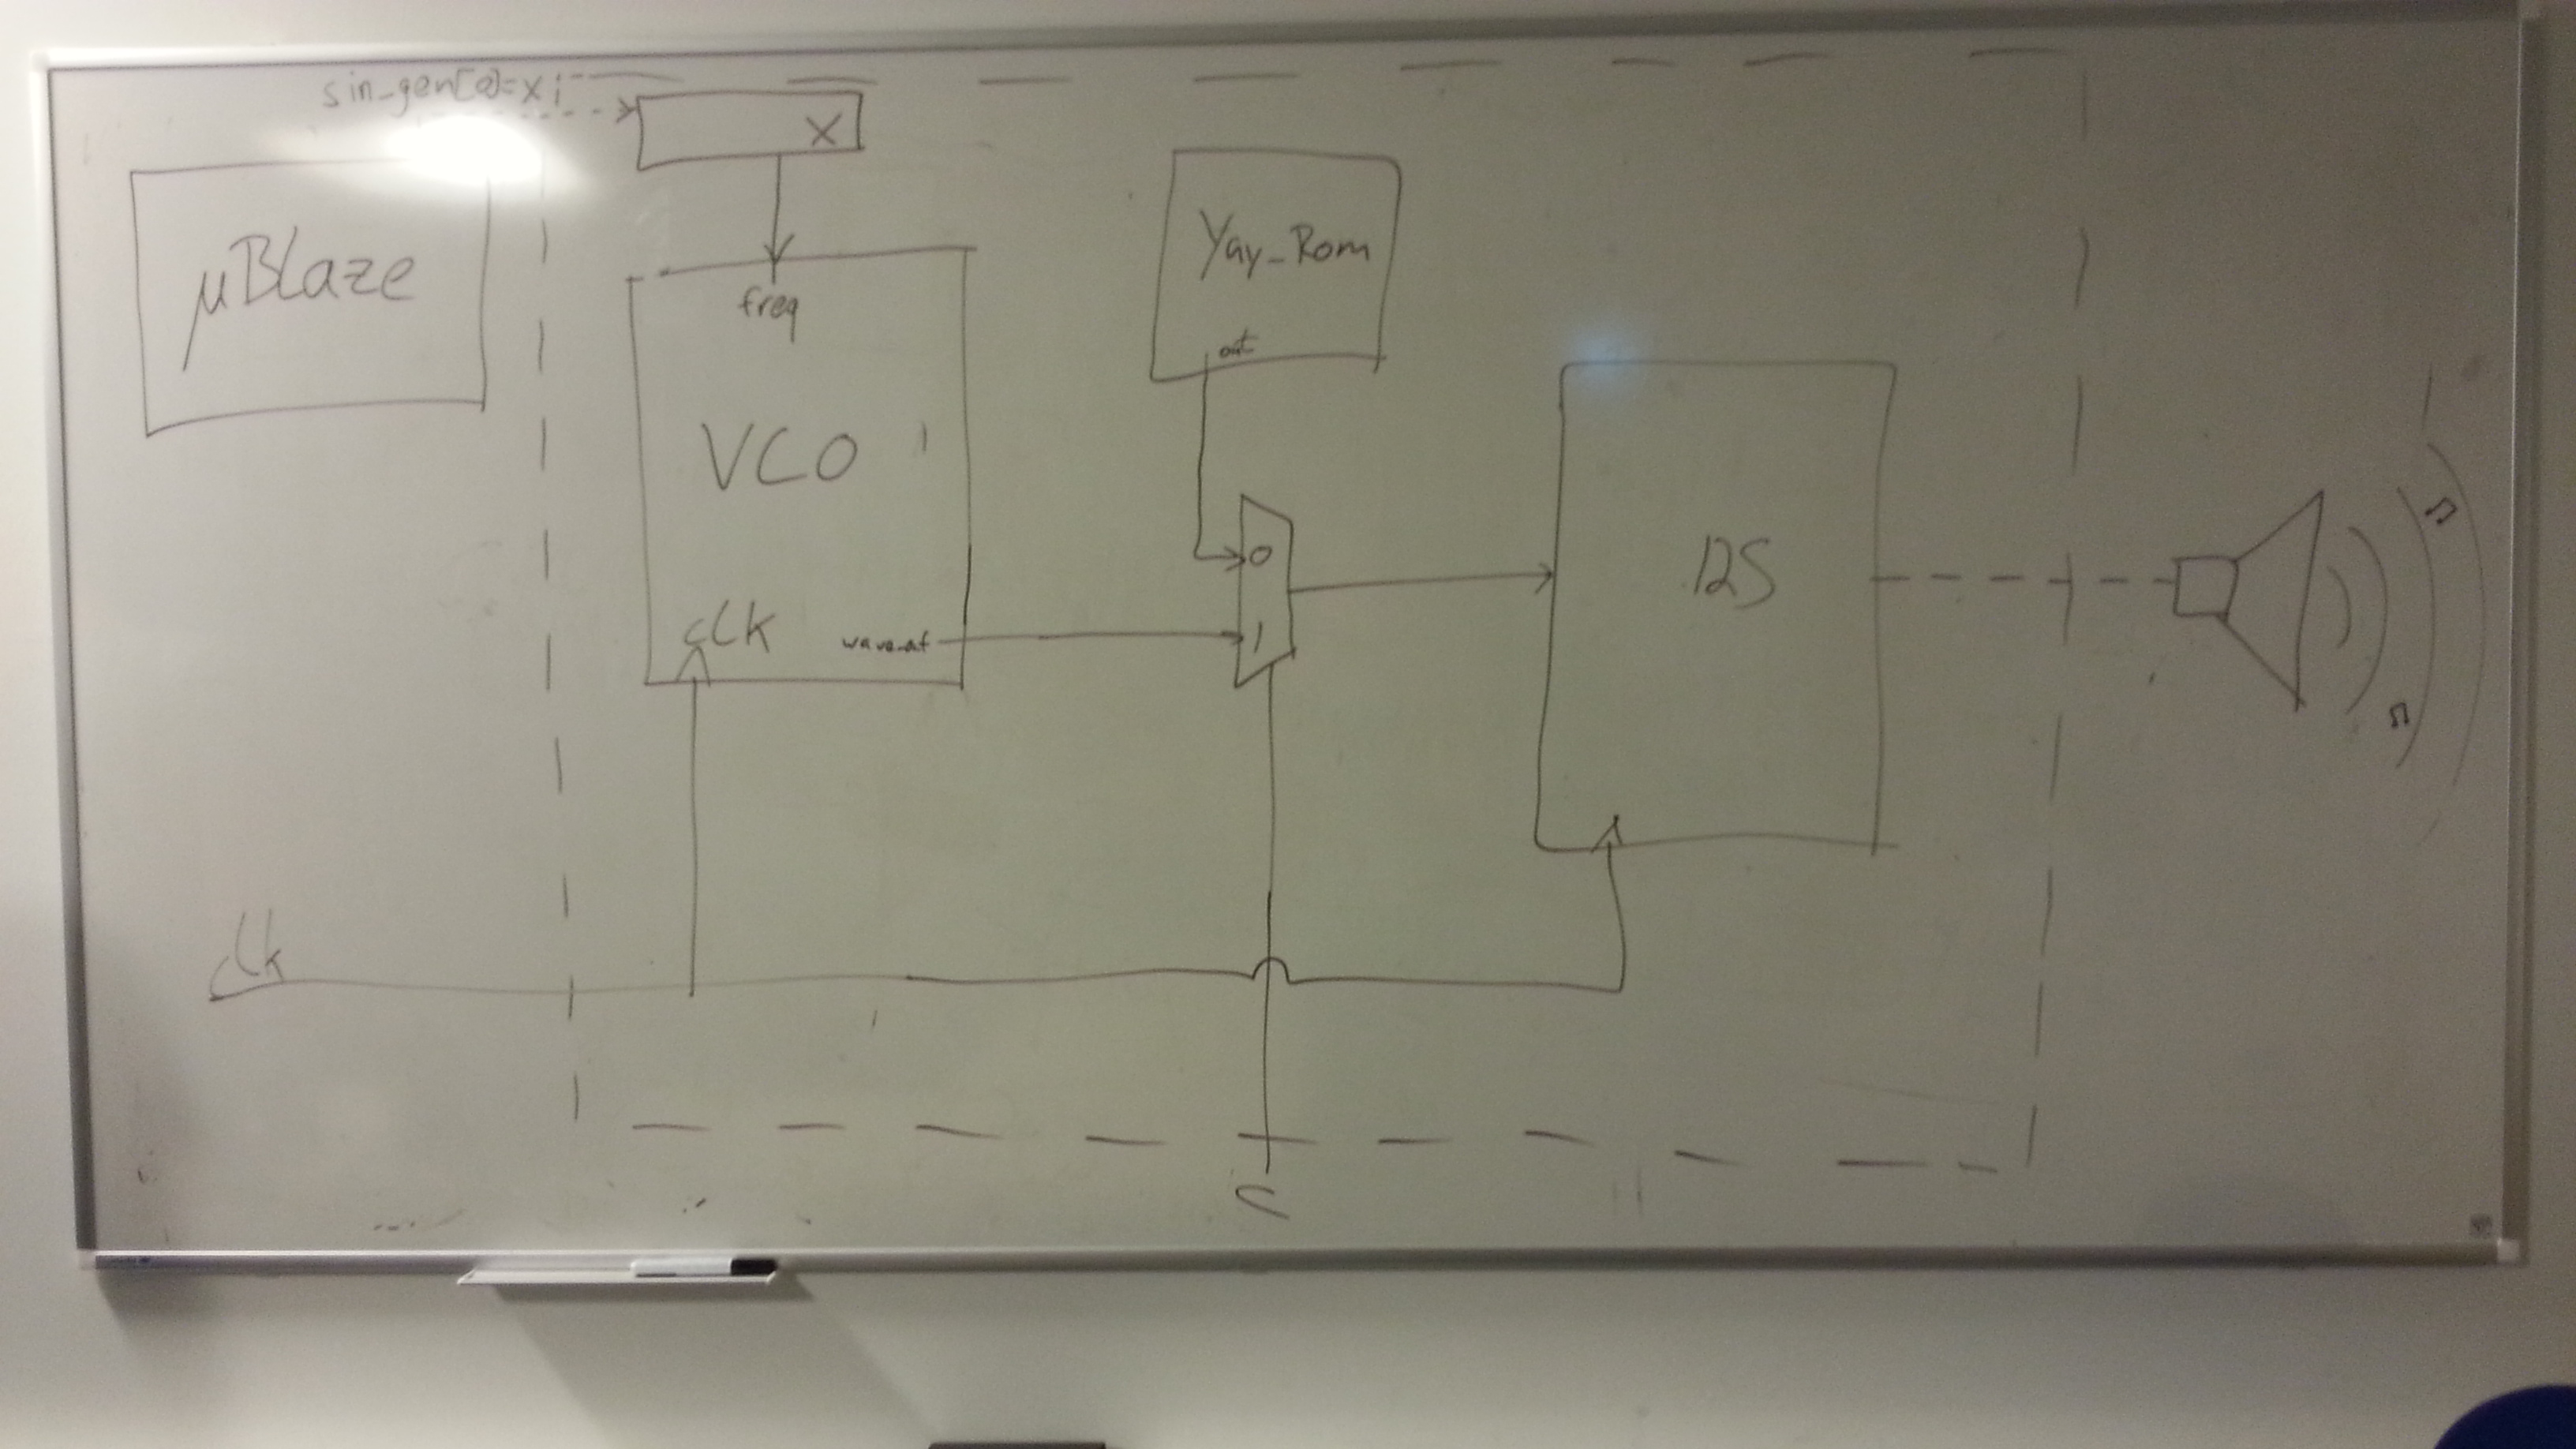 sin_gen[0]=x;
X
μBlaze
freq
VCO
clk
wave_out
Yay_Rom
out
0
1
I2S
clk